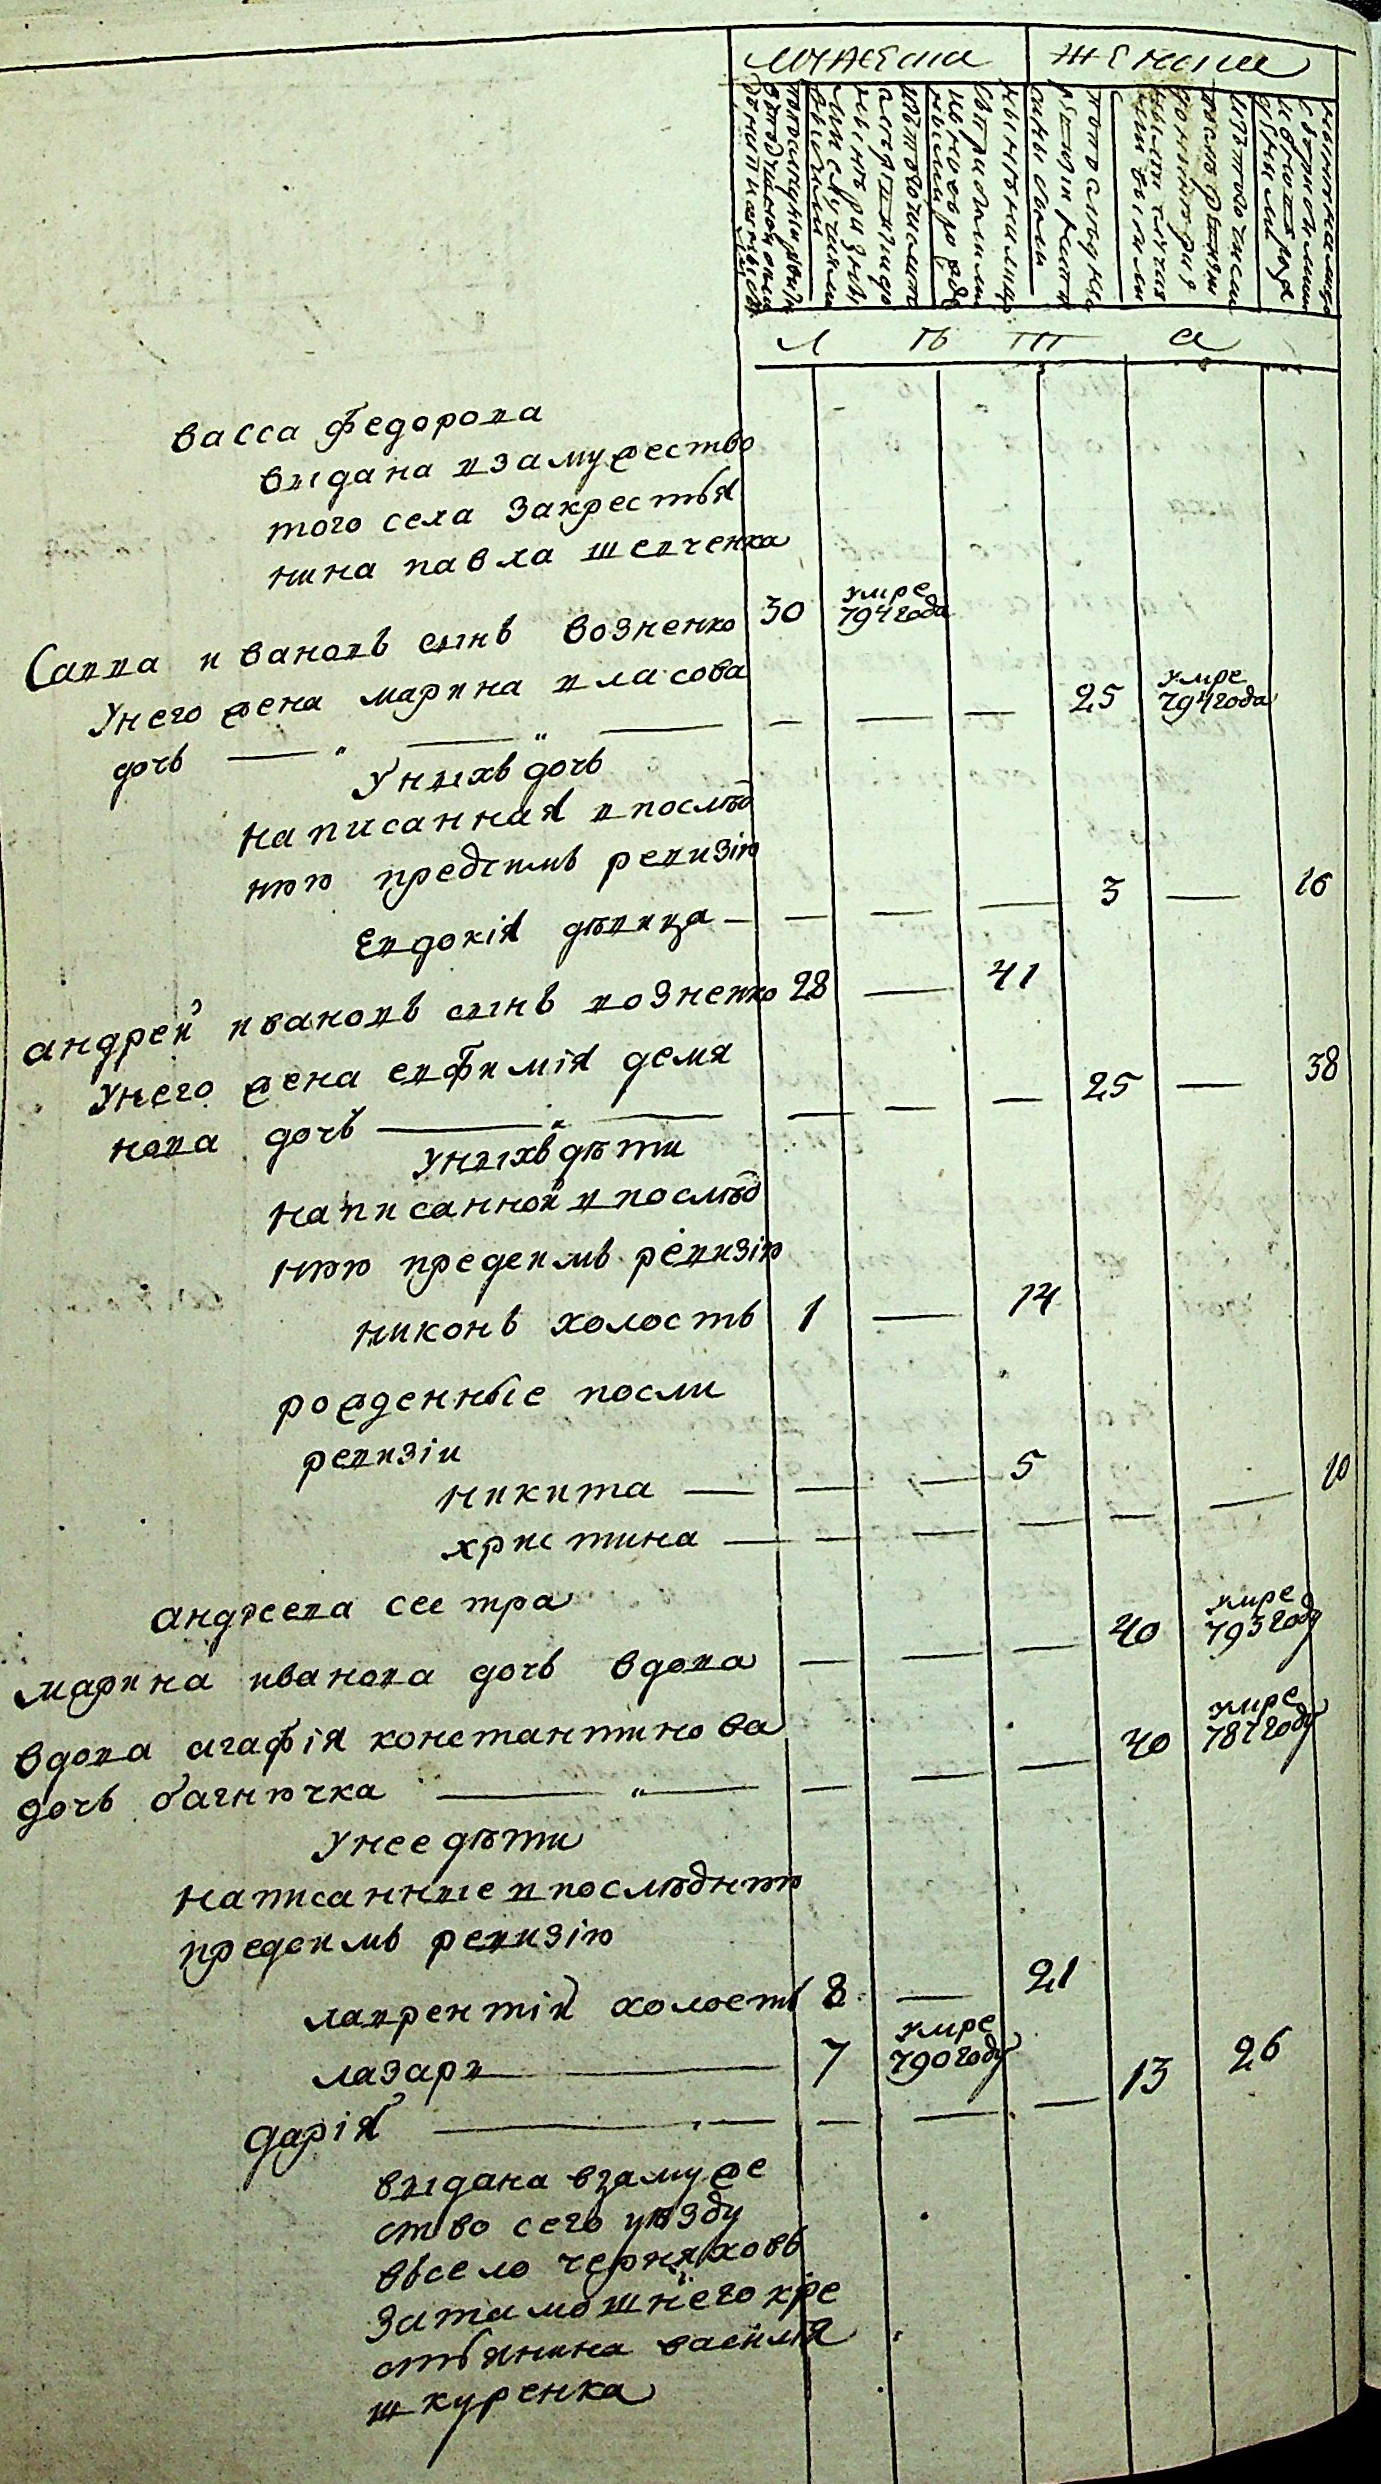 мужеска женски
л ѣ т а
васса федорова
выдана взамужество
того села Закрестья
нина павла шевченка
Савва ивановъ сынъ возненко 30 умре 794 года
Унего жена марина власова
дочь — „ — „ — — — — 25 умре 794 года
Унихъ дочь
написанная впослѣд
нюю предсимъ ревизію
Евдокія дѣвица — — — — 3 — 16
андрей ивановъ сынъ возненко 28 — 41
Унего жена евфимія демя
нова дочь — „ — — — — 25 — 38
Унихъ дѣти
написанной впослѣд
нюю предсимъ ревизію
никонъ холостъ 1 — 14
рожденные посли
ревизіи
никита — — — 5
христина — — — — — — 10
андреева сестра
марина иванова дочь вдова — — — 40 умре 793 году
вдова агафія константинова
дочь багнючка — „ — — — — 40 умре 787 году
Унее дѣти
написанные впослѣднюю
предсимъ ревизію
лаврентій холостъ 8 — 21
лазарь — 7 умре 790 году
дарія — — — — — 13 26
выдана взамуже
ство сего уѣзду
въсело черняховъ
Затамошнего кре
стьянина василія
шкуренка